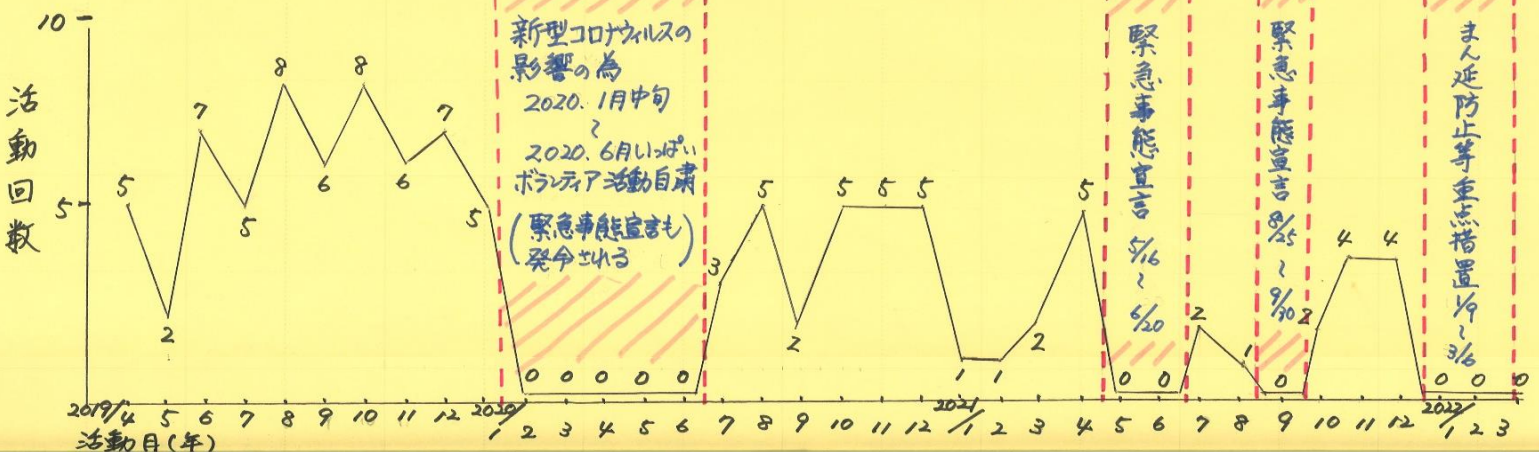 10
活動回数
5
5
2
7
5
8
6
8
6
7
5
新型コロナウィルスの
影響の為
2020.1月中旬
~
2020.6月いっぱい
ボランティア活動自粛
(緊急事態宣言も
発令される)
0 0 0 0 0
3
5
2
5 5 5
1 1
2
5
緊急事態宣言 5/16~6/20
0 0
2
1
緊急事態宣言 8/25~9/30
0
2
4 4
まん延防止等重点措置 1/9~3/6
0 0 0
2019/4 5 6 7 8 9 10 11 12 2020/1 2 3 4 5 6 7 8 9 10 11 12 2021/1 2 3 4 5 6 7 8 9 10 11 12 2022/1 2 3
活動月(年)